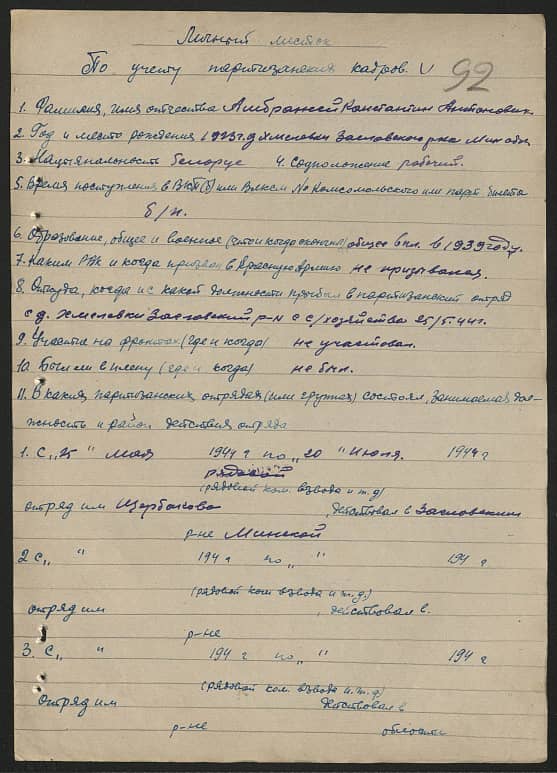 Личный листок
По учету партизанских кадров. V 92
1. Фамилия, имя отчества Амбражей Константин Антонович
2. Год и место рождения 1923 г. д Хмелевка Заславского р-на Мин обл.
3. Нацыянальность белорус 4. Соцположение рабочий.
5. Время поступления в ВКП(б) или Влксм № Комсомольского или парт билета
б/п.
6. Образование, общее и военное (что и когда окончил) общее 6 кл. в 1939 году.
7. Каким РВК и когда призван в Красную Армию не призывался
8. Откуда, когда и с какой должности прибыл в партизанский отряд
с д. Хмелевки Заславский р-н с с/хозяйства 25/5.44 г.
9. Участие на фронтах (где и когда) не участвовал.
10. Был ли в плену (где и когда) не был.
11. В каких партизанских отрядах (или группах) состоял, занимаемая дол-
жность и район действия отряда
1. С „25 " мая 1944 г по „20 " Июля. 1944 г
рядовой
(рядовой ком. взвода и т. д)
отряд им Щербакова , действовал в Заславским
р-не Минской
2 С „ " 194 г по „ " 194 г
(рядовой ком взвода и т. д.)
отряд им , действовал в.
р-не
3. С „ " 194 г по „ " 194 г
(рядовой ком. взвода и т. д)
отряд им действовал в
р-не области